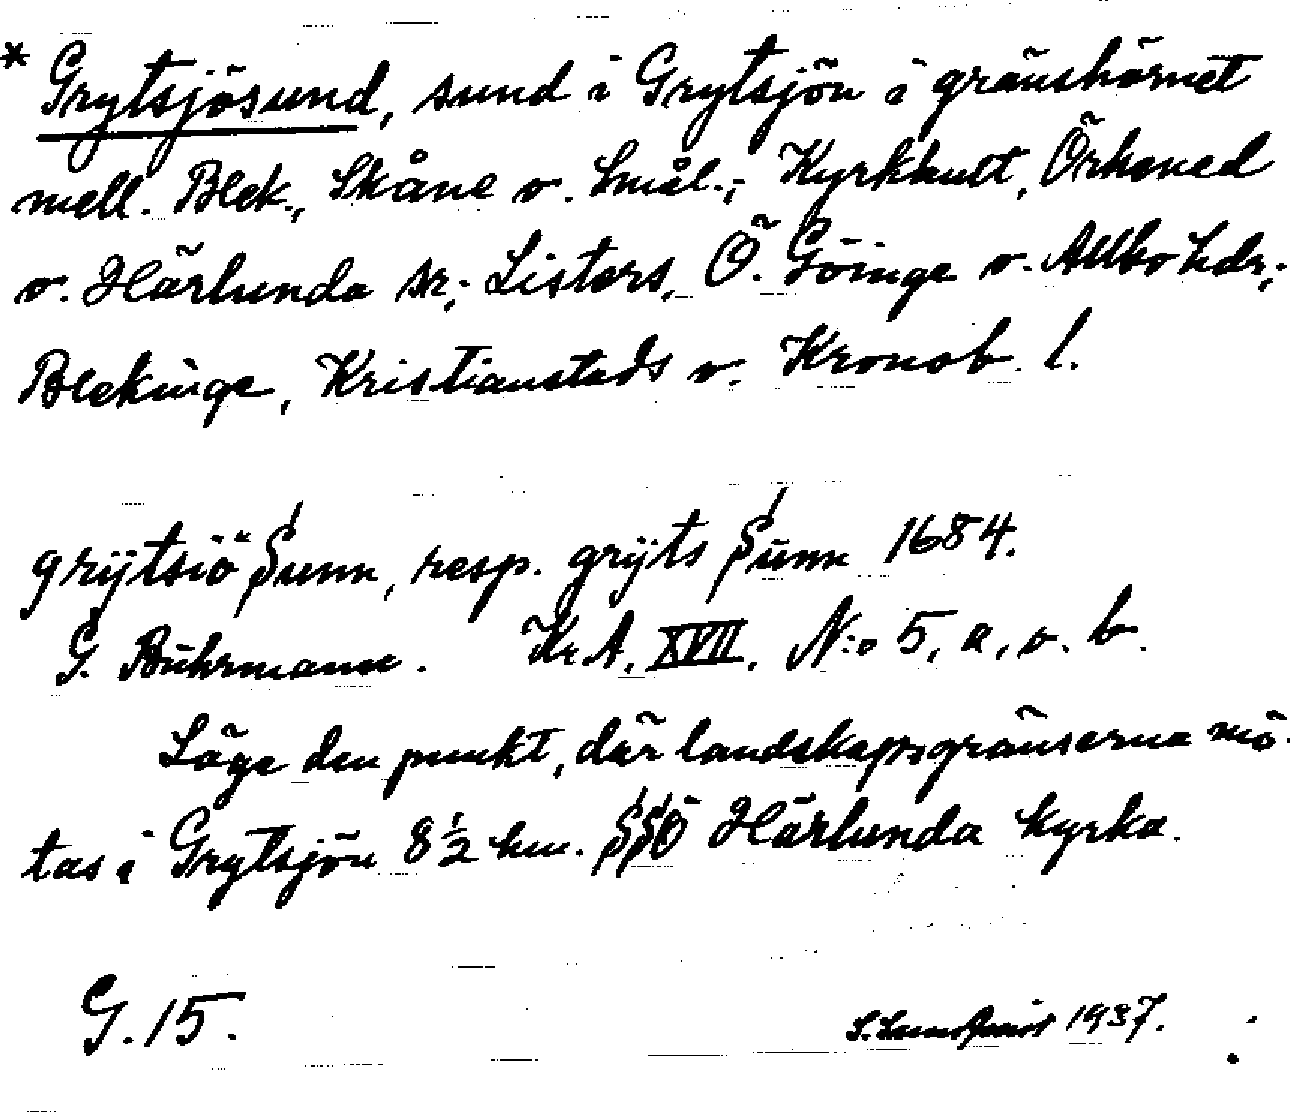 * Grytsjösund, sund i Grytsjön i gränshörnet
mell. Blek., Skåne o. Smål.; Kyrkhult, Örkened
o. Härlunda sr; Listers, Ö. Göinge o. Allbo hdr;
Blekinge, Kristianstads o. Kronob. l.
grÿtsiö Sunn, resp. grÿts Sunn 1684.
G. Buhrmann. Kr A. XVII. N:o 5, a, o. b.
Läge den punkt, där landskapsgränserna mö-
tas i Grytsjön 8½ km. SSÖ Härlunda kyrka.
G. 15.
S. Lundqvist 1937.